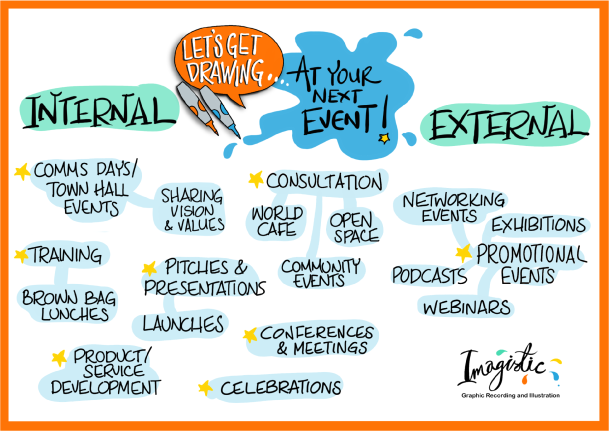 LET'S GET
DRAWING....
AT YOUR
NEXT
EVENT!
INTERNAL
EXTERNAL
COMMS DAYS/
TOWN HALL
EVENTS
SHARING
VISION
& VALUES
TRAINING
BROWN BAG
LUNCHES
PITCHES &
PRESENTATIONS
LAUNCHES
PRODUCT/
SERVICE
DEVELOPMENT
CONSULTATION
WORLD
CAFE
OPEN
SPACE
COMMUNITY
EVENTS
CONFERENCES
& MEETINGS
CELEBRATIONS
NETWORKING
EVENTS
EXHIBITIONS
PROMOTIONAL
EVENTS
PODCASTS
WEBINARS
Imagistic
Graphic Recording and Illustration